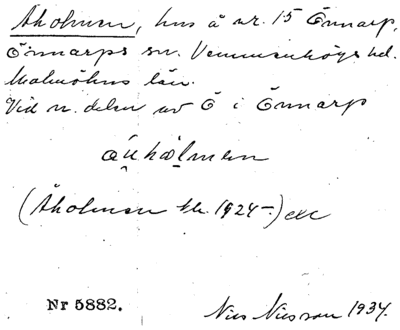 Åholmen, hus å nr. 15 Önnarp,
Önnarps sn. Vemmenhögs hd.
Malmöhus län.
Vid n. delen av Ö i Önnarp
åu̯hålmen
(Åholmen 1924-)
Nr 5882.
Nils Nilsson 1934.